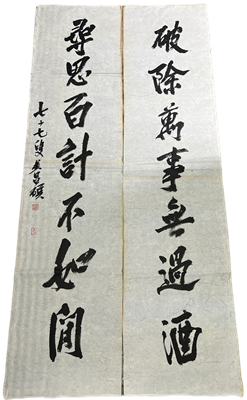 破除萬事無過酒
尋思百計不如閒
七十七叟吳昌碩